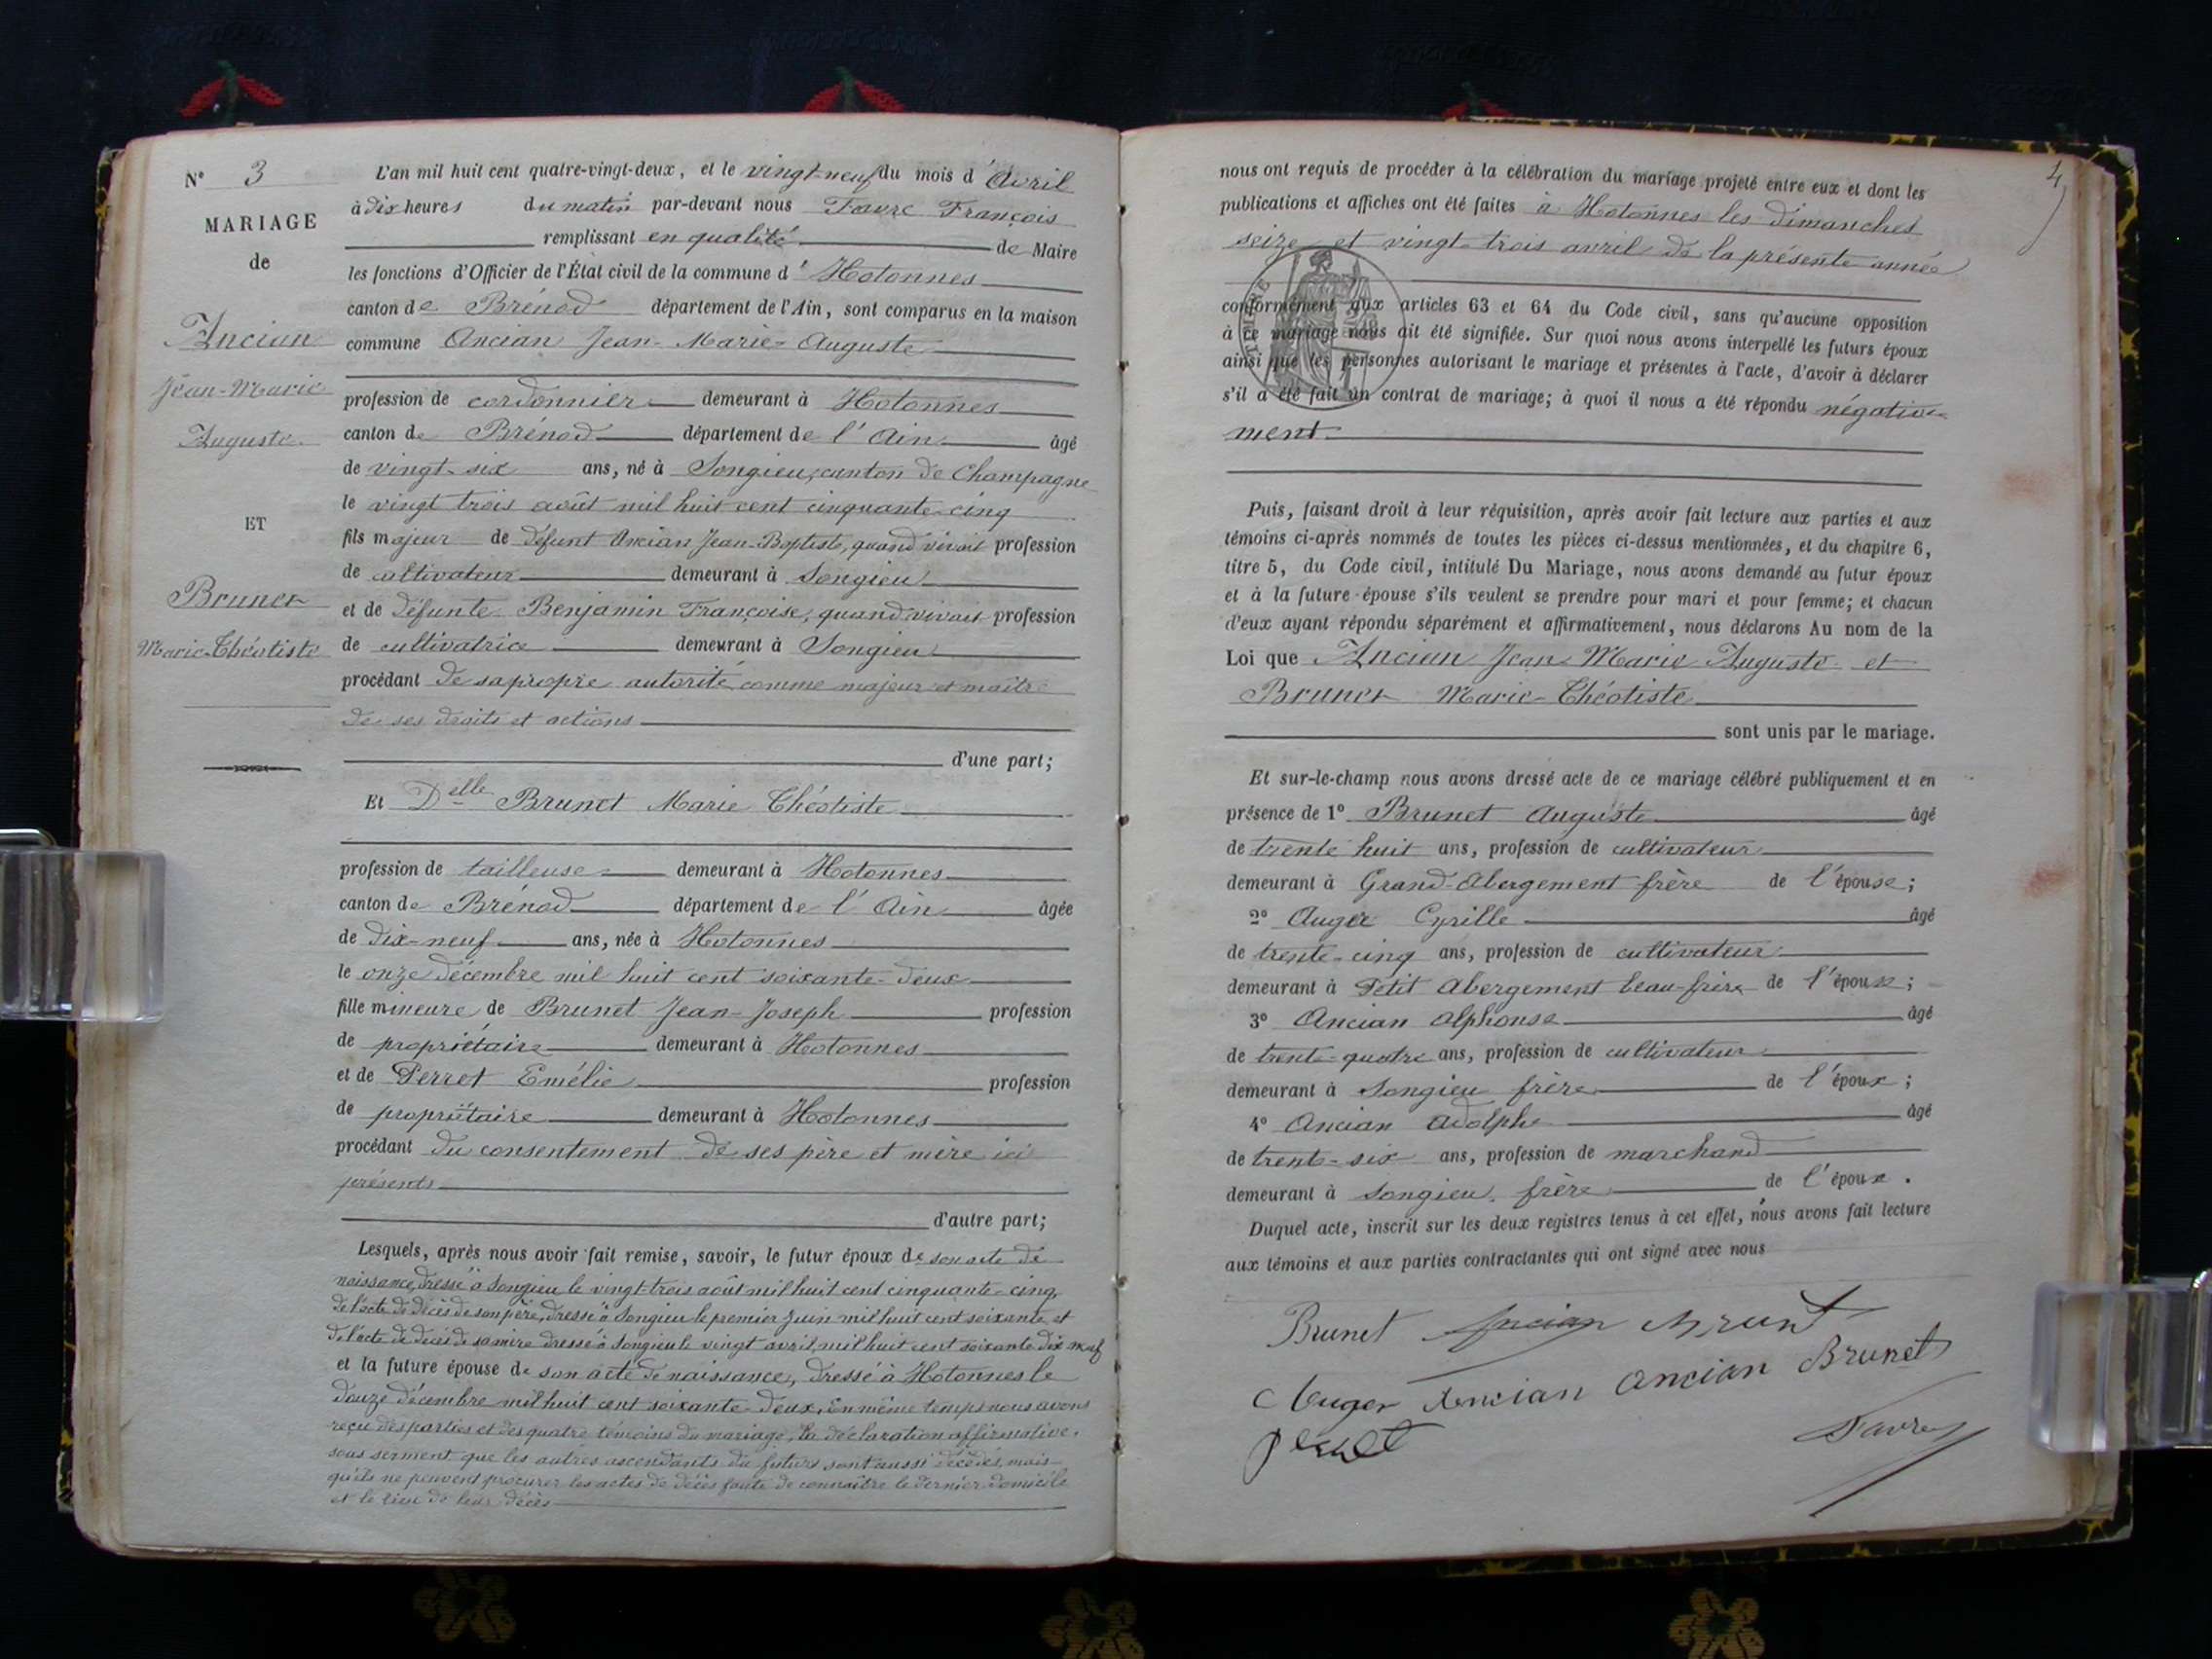 N° 3
MARIAGE
de
Ancian
Jean-Marie
Auguste
ET
Brunet
Marie-Théotiste
L'an mil huit cent quatre-vingt-deux, et le vingt-neuf du mois d'Avril
à dix heures du matin par-devant nous Favre François
remplissant en qualité de Maire
les fonctions d'Officier de l'État civil de la commune d'Hotonnes
canton de Brénod département de l'Ain, sont comparus en la maison
commune Ancian Jean-Marie-Auguste
profession de cordonnier demeurant à Hotonnes
canton de Brénod département de l'Ain âgé
de vingt-six ans, né à Songieu, canton de Champagne
le vingt trois août mil huit cent cinquante-cinq
fils majeur de défunt Ancian Jean-Baptiste, quand vivait profession
de cultivateur demeurant à Songieu
et de défunte Benjamin Françoise, quand vivait profession
de cultivatrice demeurant à Songieu
procédant de sa propre autorité comme majeur et maître
de ses droits et actions
d'une part;
Et Delle Brunet Marie Théotiste
profession de tailleuse demeurant à Hotonnes
canton de Brénod département de l'Ain âgée
de dix-neuf ans, née à Hotonnes
le onze décembre mil huit cent soixante-deux
fille mineure de Brunet Jean-Joseph profession
de propriétaire demeurant à Hotonnes
et de Perret Emélie profession
de propriétaire demeurant à Hotonnes
procédant du consentement de ses père et mère ici
présents
d'autre part;
Lesquels, après nous avoir fait remise, savoir, le futur époux de son acte de
naissance, dressé à Songieu le vingt-trois août mil huit cent cinquante-cinq,
de l'acte de décès de son père, dressé à Songieu le premier juin mil huit cent soixante, et
de l'acte de décès de sa mère dressé à Songieu le vingt avril mil huit cent soixante dix neuf
et la future épouse de son acte de naissance, dressé à Hotonnes le
douze décembre mil huit cent soixante-deux, En même temps nous avons
reçu des parties et des quatre témoins du mariage, la déclaration affirmative,
sous serment que les autres ascendants du futur sont aussi décédés, mais
qu'ils ne peuvent procurer les actes de décès faute de connaître le dernier domicile
et le lieu de leur décès
4
nous ont requis de procéder à la célébration du mariage projeté entre eux et dont les
publications et affiches ont été faites à Hotonnes les dimanches
seize et vingt-trois avril de la présente année
TIMBRE
conformément aux articles 63 et 64 du Code civil, sans qu'aucune opposition
à ce mariage nous ait été signifiée. Sur quoi nous avons interpellé les futurs époux
ainsi que les personnes autorisant le mariage et présentes à l'acte, d'avoir à déclarer
s'il a été fait un contrat de mariage; à quoi il nous a été répondu négative-
ment
Puis, faisant droit à leur réquisition, après avoir fait lecture aux parties et aux
témoins ci-après nommés de toutes les pièces ci-dessus mentionnées, et du chapitre 6,
titre 5, du Code civil, intitulé Du Mariage, nous avons demandé au futur époux
et à la future épouse s'ils veulent se prendre pour mari et pour femme; et chacun
d'eux ayant répondu séparément et affirmativement, nous déclarons Au nom de la
Loi que Ancian Jean Marie Auguste et
Brunet Marie-Théotiste
sont unis par le mariage.
Et sur-le-champ nous avons dressé acte de ce mariage célébré publiquement et en
présence de 1° Brunet Auguste âgé
de trente huit ans, profession de cultivateur
demeurant à Grand-Abergement frère de l'épouse;
2° Auger Cyrille âgé
de trente-cinq ans, profession de cultivateur
demeurant à Petit Abergement beau-frère de l'époux;
3° Ancian Alphonse âgé
de trente-quatre ans, profession de cultivateur
demeurant à Songieu frère de l'époux;
4° Ancian Adolphe âgé
de trente-six ans, profession de marchand
demeurant à Songieu, frère de l'époux.
Duquel acte, inscrit sur les deux registres tenus à cet effet, nous avons fait lecture
aux témoins et aux parties contractantes qui ont signé avec nous
Brunet Ancian Brunet
Auger Ancian Ancian Brunet
Perret Favre